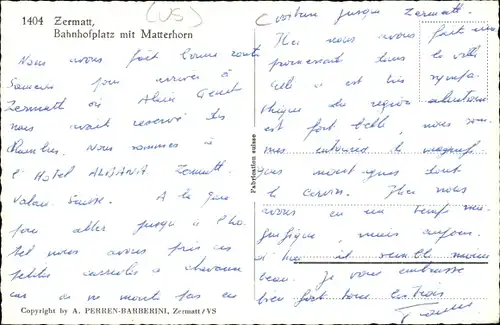 1404 Zermatt,
Bahnhofplatz mit Matterhorn
(VS)
Nous avons fait bonne route
Samedi pour arriver à
Zermatt où Alain
nous avait réservé les
chambres. Nous sommes à
l'Hotel ALPINA. Zermatt.
Valais. Suisse. A la gare
pour aller jusqu'à l'ho
tel nous avons pris ces
petites carrioles à chevaux
car on ne monte pas en
Fabrication suisse
Copyright by A. PERREN-BARBERINI, Zermatt/VS
voiture jusque Zermatt.
Hier nous avons fait une
promenade dans la ville
Elle est très sympa
thique la région
est fort belle, nous som
mes entourés de magnifi
ques montagnes dont
le Cervin. Hier nous
avons eu un temps ma
gnifique, mais aujour.
il semble moins
beau. Je vous embrasse
bien fort tous les trois